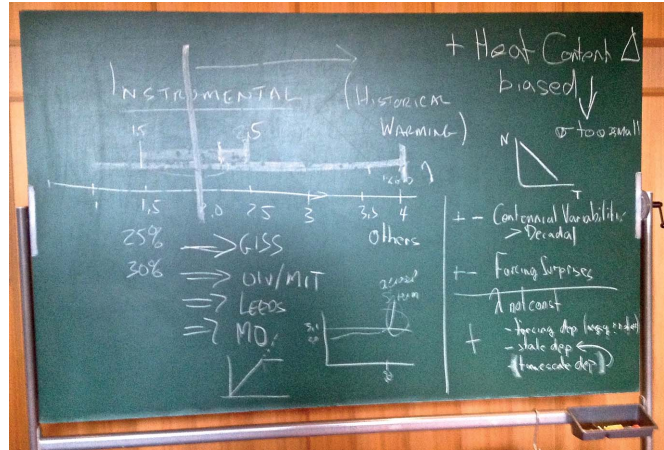 INSTRUMENTAL
(HISTORICAL
WARMING)
1.5
2.5
1 1.5 2.0 2.5 3 3.5 4
25% → GISS
30% ⇒ UIV/MIT
⇒ LEEDS
⇒ MO
Others
+ Heat Content Δ
biased
σ too small
N
T
+ - Centennial Variability
> Decadal
+ - Forcing Surprises
λ not const
+
- forcing dep
- state dep
- (timescale dep)